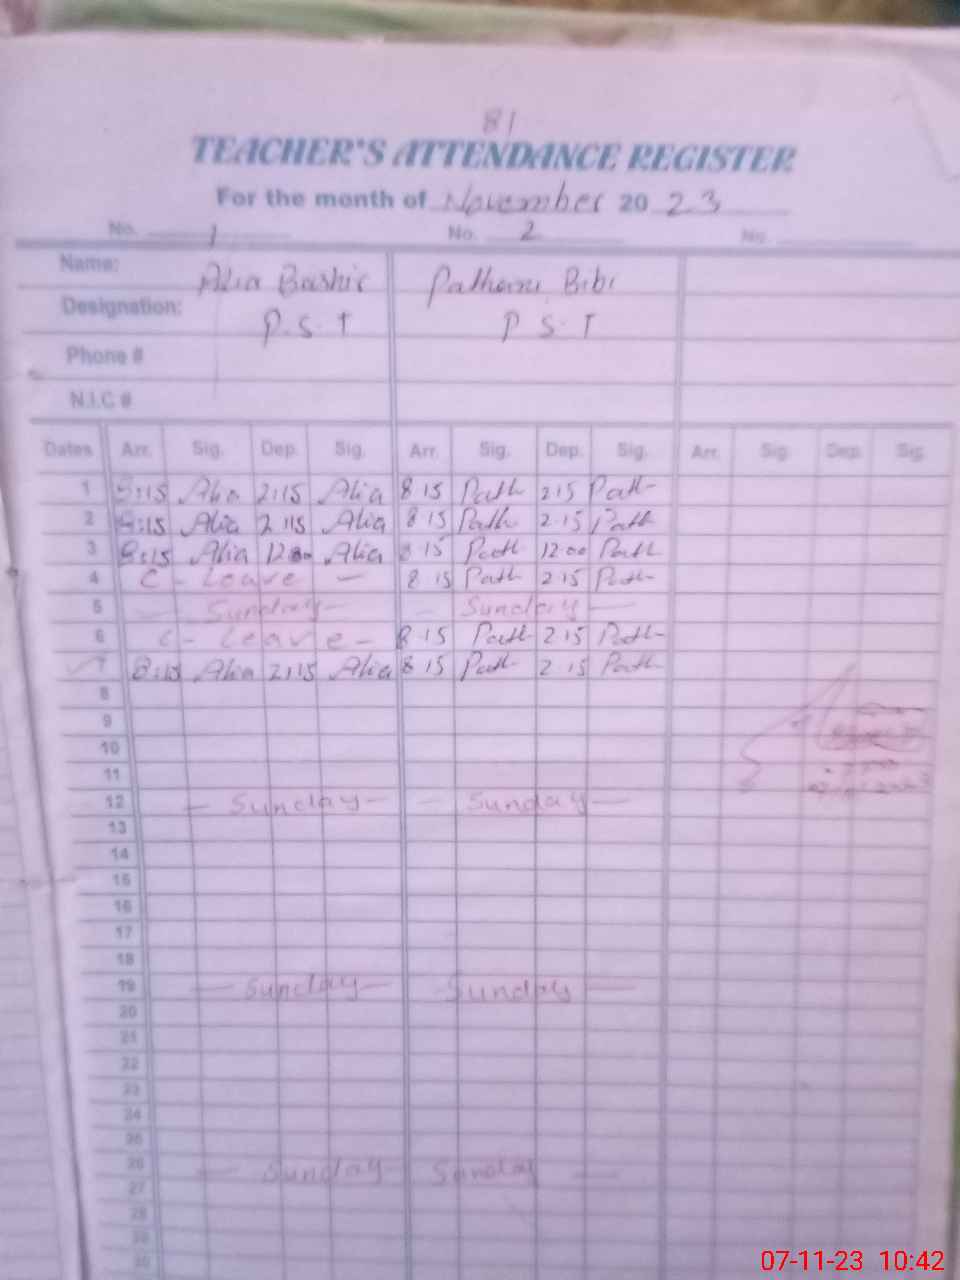 81
TEACHER'S ATTENDANCE REGISTER
For the month of November 20 23
No. 1 No. 2 No.
Name: Alia Bashir Pathani Bibi
Designation: P.S.T P S.T
Phone #
N.I.C #
Dates Arr. Sig. Dep. Sig. Arr. Sig. Dep. Sig. Arr. Sig. Dep. Sig.
1 8:15 Alia 2:15 Alia 8 15 Path 2 15 Path
2 8:15 Alia 2:15 Alia 8 15 Path 2.15 Path
3 8:15 Alia 12.00 Alia 8.15 Path 12.00 Path
4 C - Leave - 8 15 Path 2 15 Path
5 - Sunday - - Sunday -
6 C - Leave - 8.15 Path 2.15 Path
7 8:15 Alia 2:15 Alia 8 15 Path 2 15 Path
8
9
10
11
12 - Sunday - - Sunday -
13
14
15
16
17
18
19 - Sunday - - Sunday -
20
21
22
23
24
25
26 - Sunday Sunday -
27
28
29
30
07-11-23 10:42